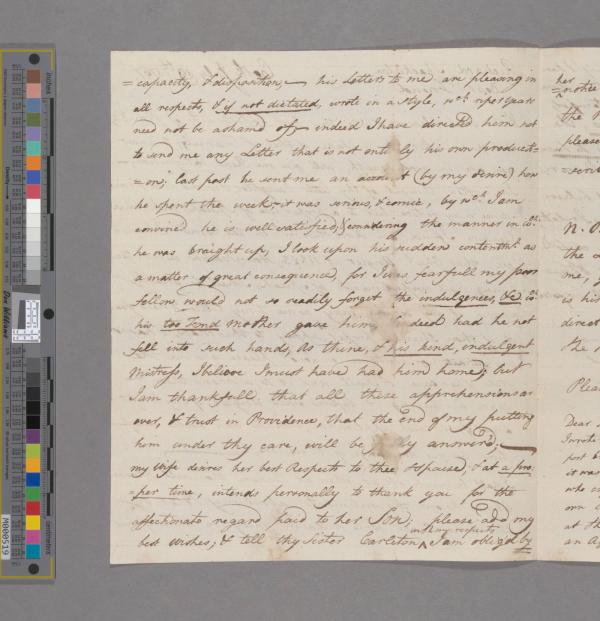 =capacity, & disposition,— his Letters to me are pleasing in
all respects, & if not dictated, wrote in a Style, wch. riper years
need not be ashamed of,— indeed I have directed him not
to send me any Letter that is not entirely his own producti=
=on; last post he sent me an account (by my desire) how
he spent the week,— it was serious, & comic, by wch. I am
convinced he is well satisfied; (considering the manner in wch.
he was brought up, I look upon his sudden contentmt. as
a matter of great consequence, for I was fearfull my poor
fellow would not so readily forget the indulgences, &c wch.
his too Fond Mother gave him, Indeed had he not
fell into such hands, as thine, & his kind, indulgent
Mistress, I believe I must have had him home; but
I am thankfull that all these apprehensions are
over, & trust in Providence, that the end of my putting
him under thy care, will be fully answer'd;—
my Wife desires her best Respects to thee & Spouse, & at a pro=
=per time, intends personally to thank you for the
affectionate regard paid to her Son, please add my
best Wishes; & tell thy Sister Carleton ^ I am oblig'd by
her
=notice
the
please
N.
the
me,
is his
direct
the
Plea
Dear
I wrote
post
it was
who
own
at
an
inches
centimetres
Don Williams
M000519